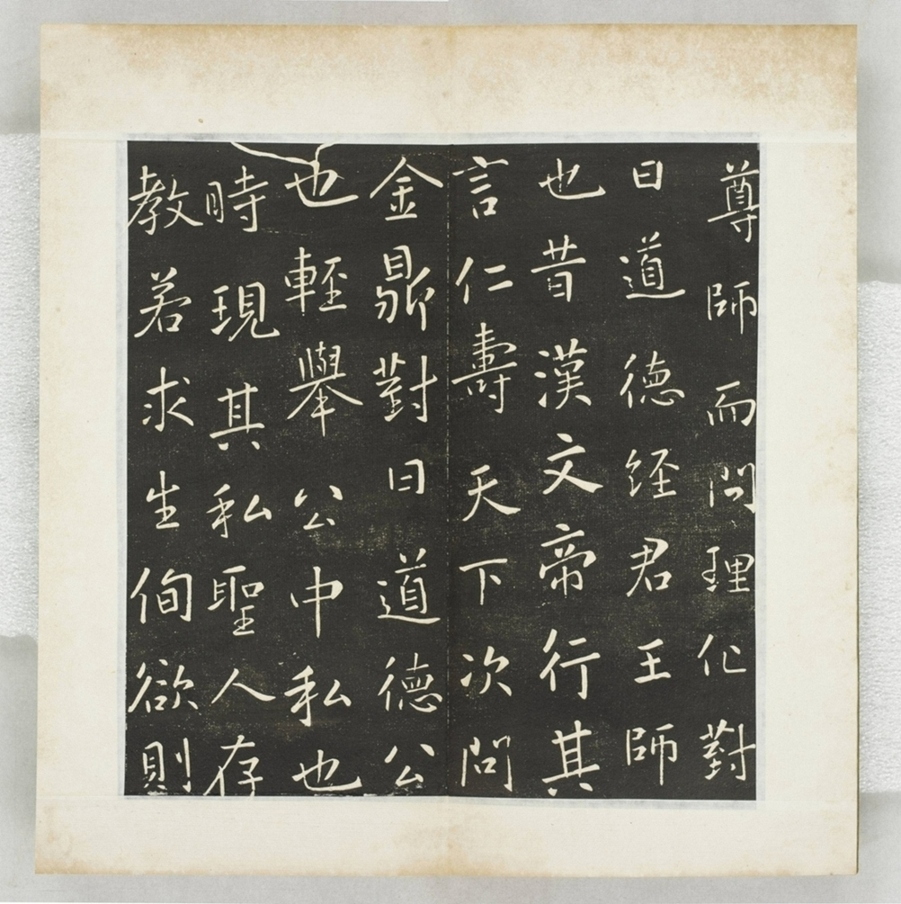 尊師而問理化對
曰道德經君王師
也昔漢文帝行其
言仁壽天下次問
金鼎對曰道德公
也輕舉公中私也
時現其私聖人存
教若求生徇欲則